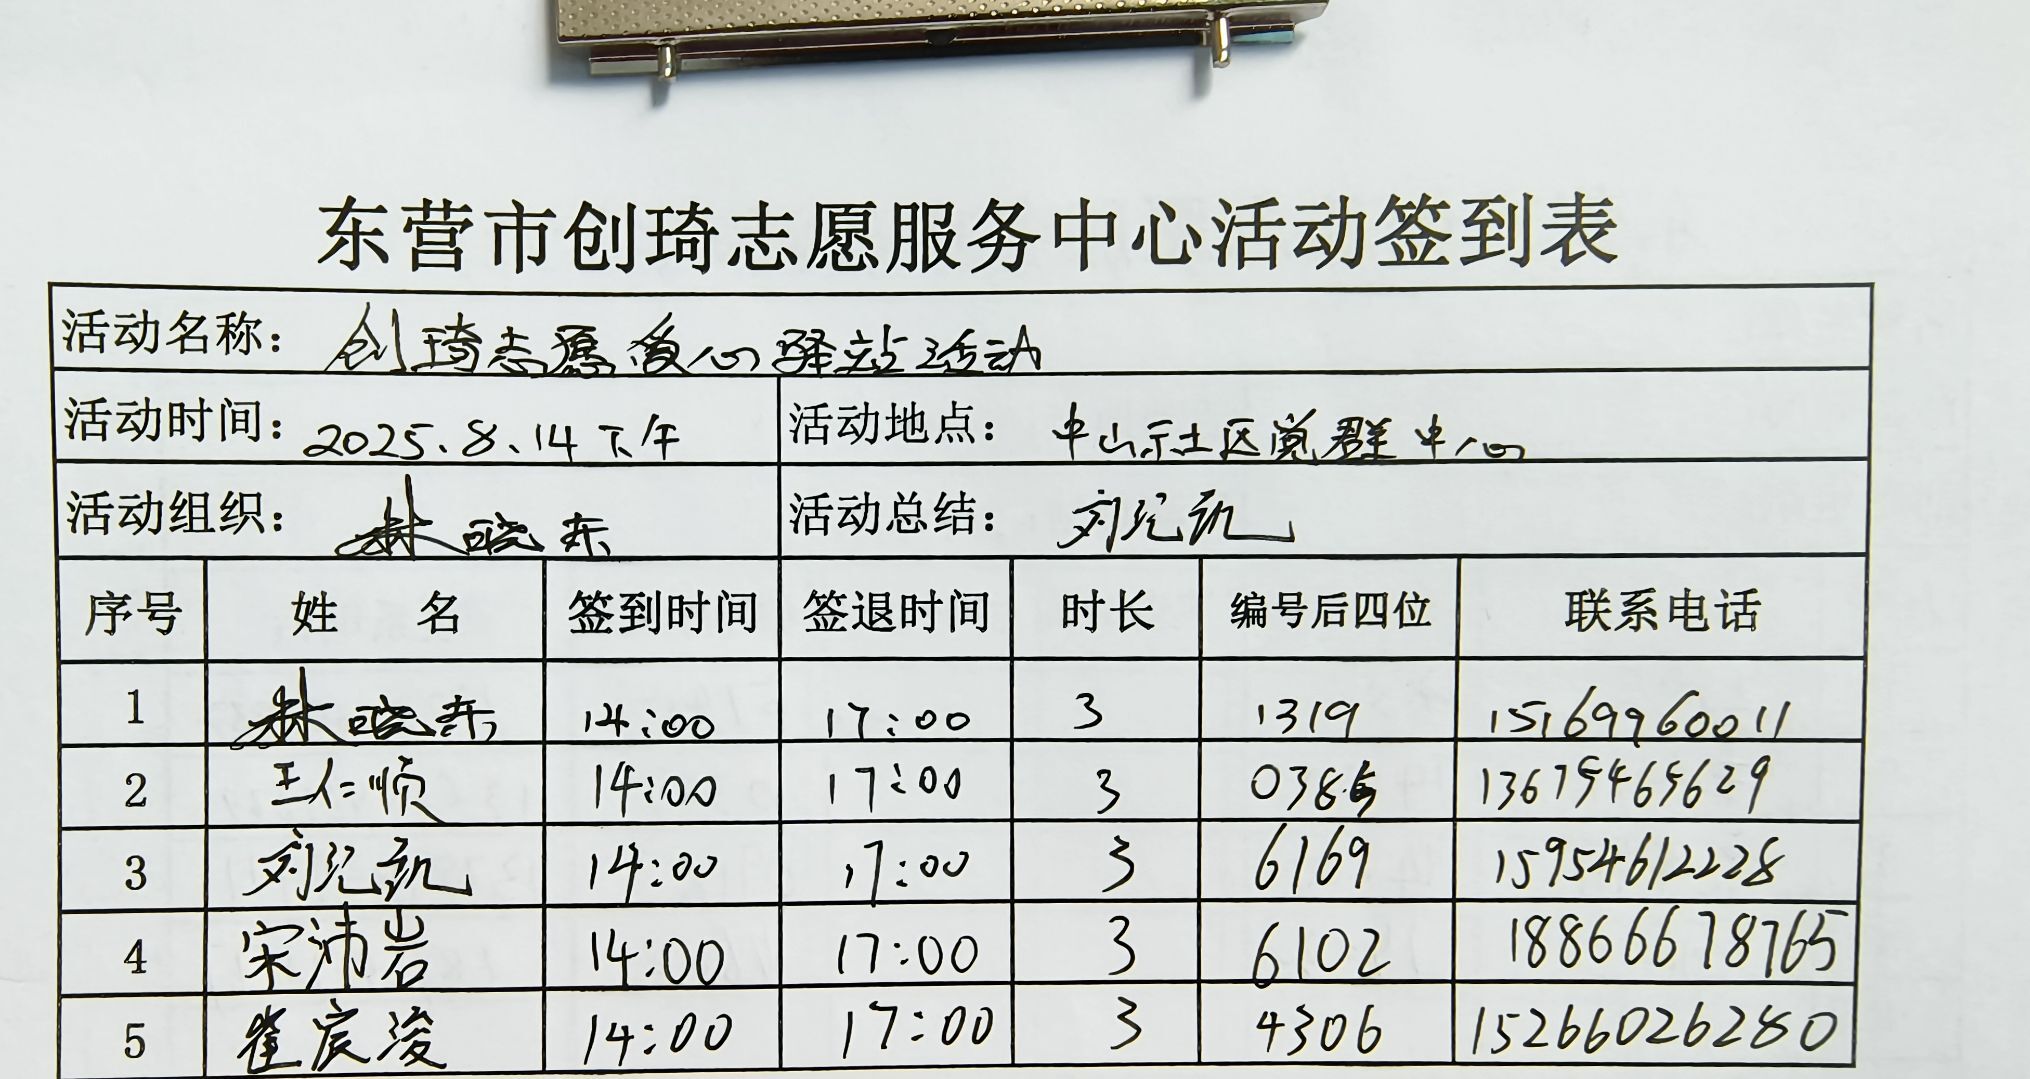 东营市创琦志愿服务中心活动签到表
活动名称： 创琦志愿爱心驿站活动
活动时间： 2025.8.14下午 活动地点： 中山东社区党群中心
活动组织： 林晓东 活动总结： 刘纪凯
序号 姓 名 签到时间 签退时间 时长 编号后四位 联系电话
1 林晓东 14:00 17:00 3 1319 15169960011
2 王仁顺 14:00 17:00 3 13675465629
3 刘纪凯 14:00 17:00 3 6169 15954612228
4 宋沛岩 14:00 17:00 3 6102 18866678765
5 崔宸浚 14:00 17:00 3 4306 15266026280